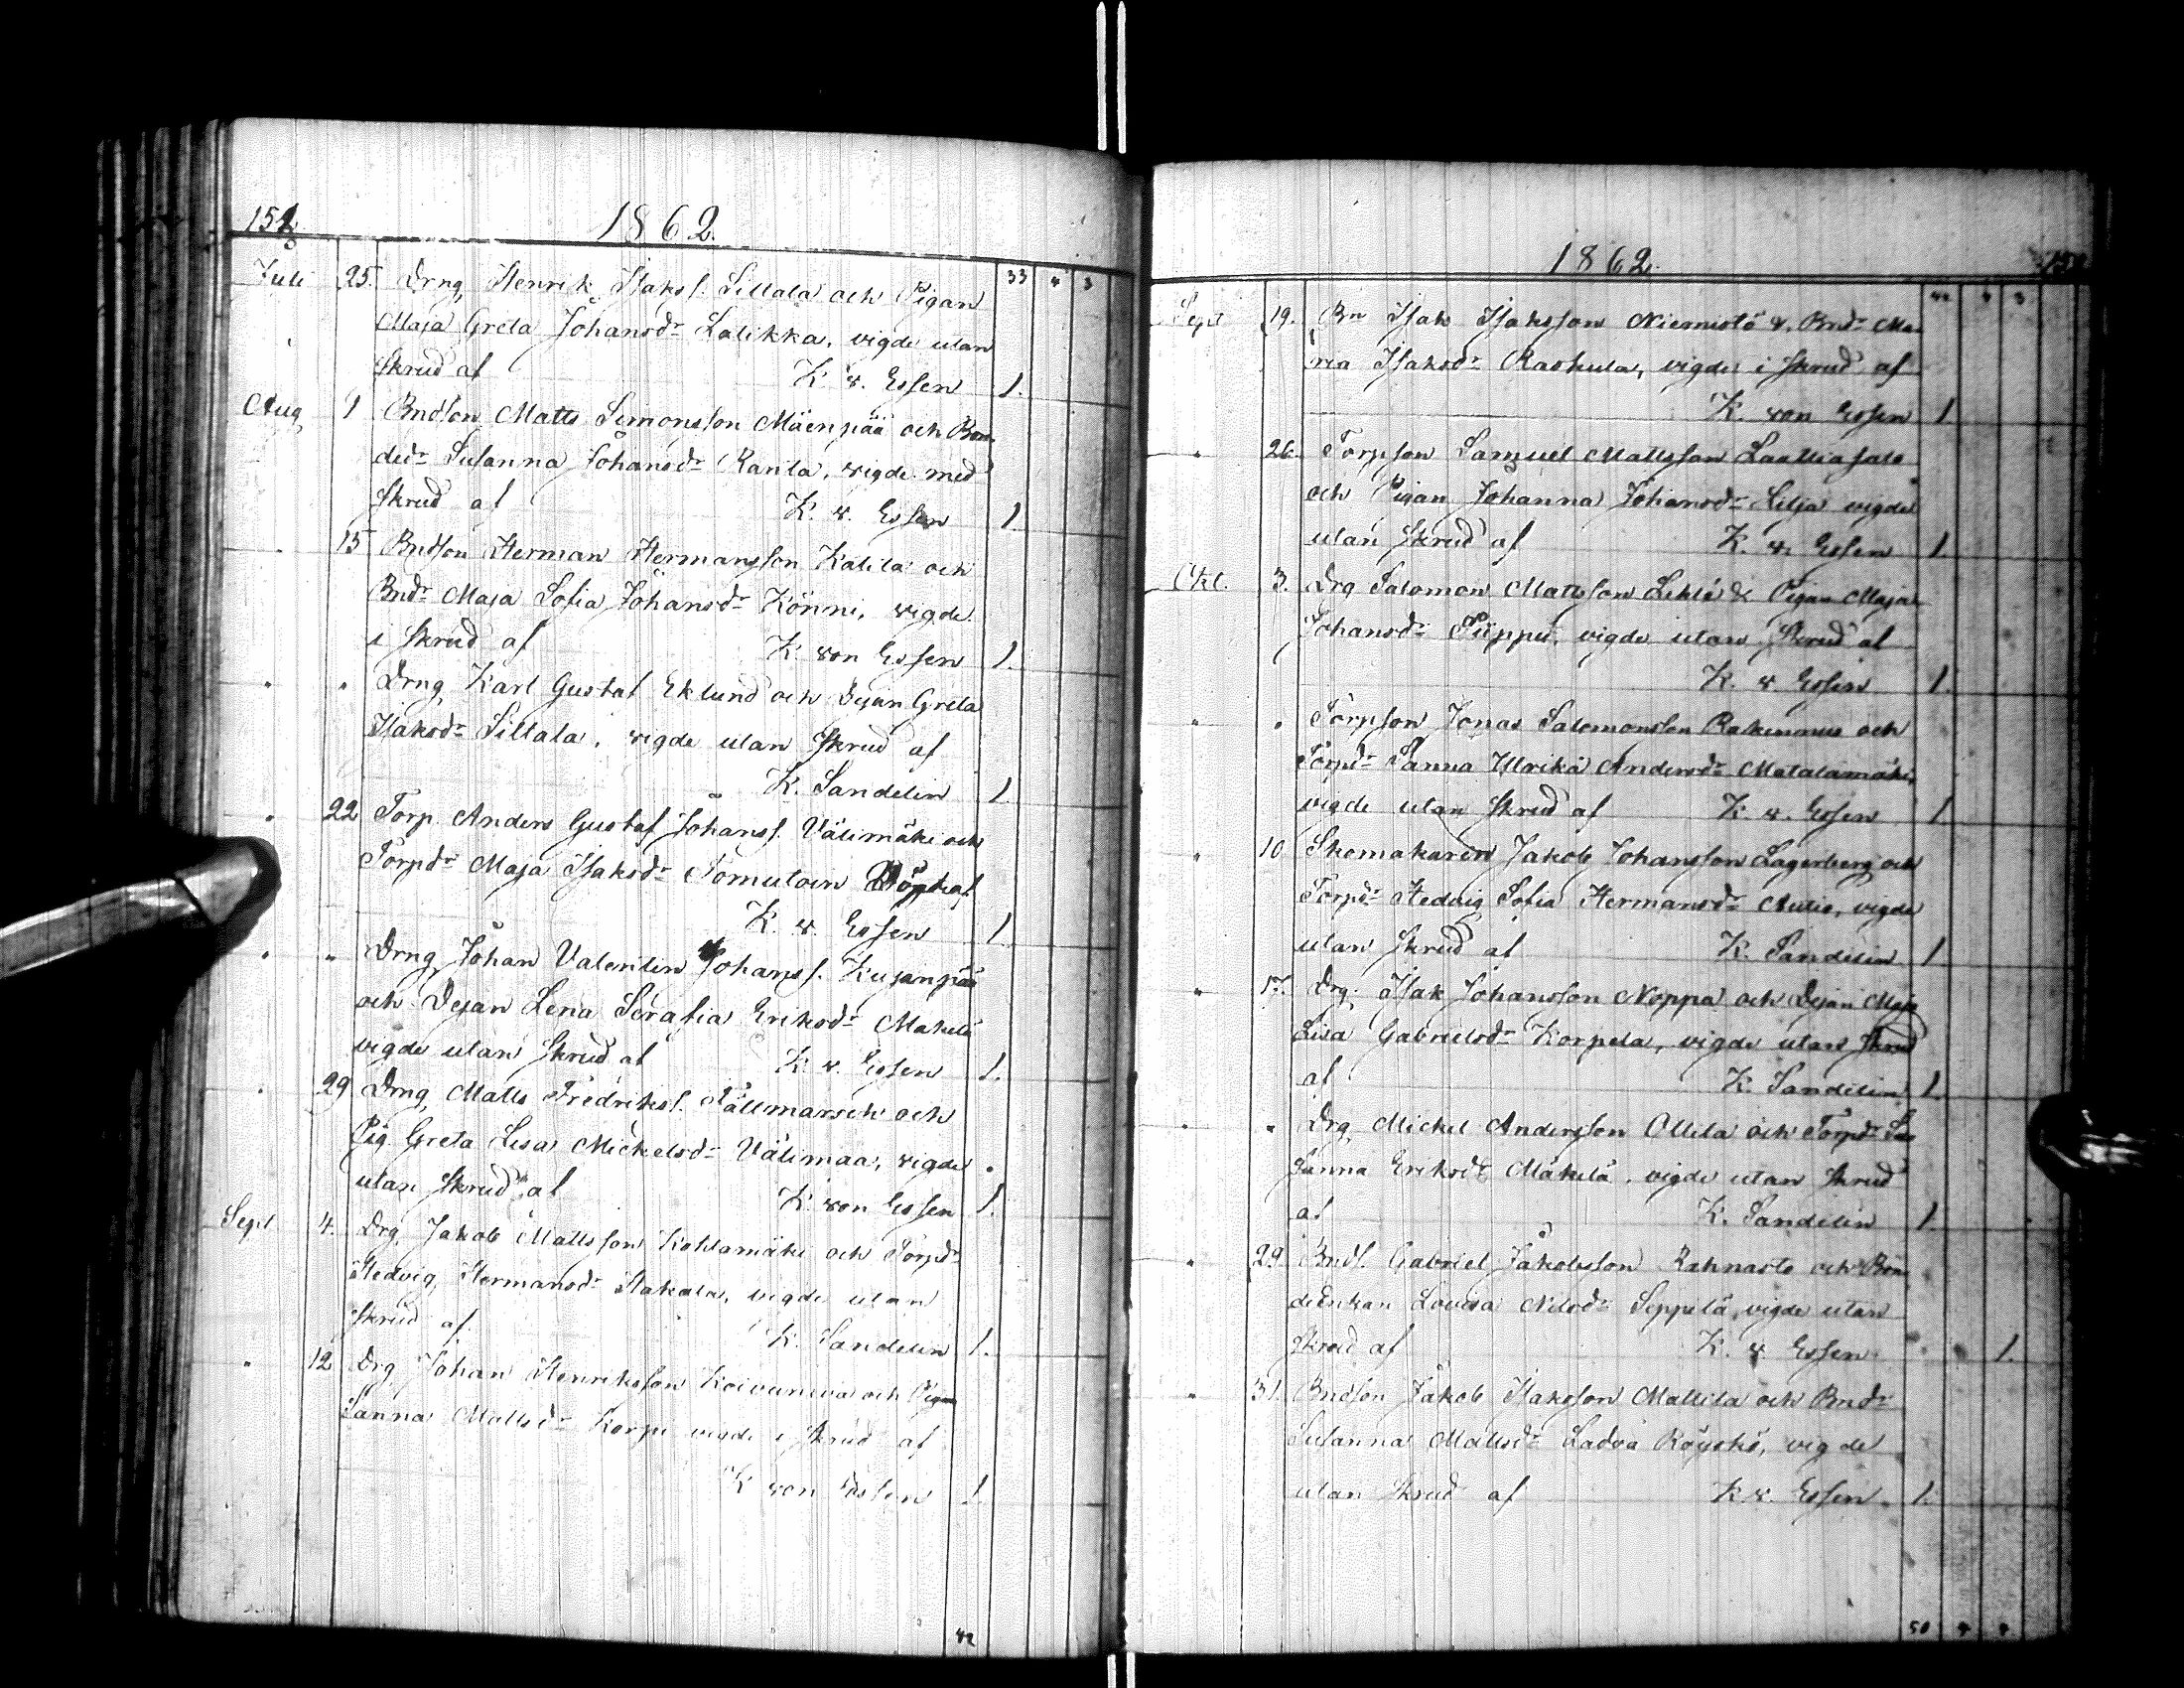 1862.
33 4 3
Juli 25. Drng Henrik Isakss. Sillala och Pigan
Maja Greta Johansdr Lalikka, vigde utan
skrud af K. v. Essen 1.
Aug 1 Bndson Matts Simonsson Mäenpää och Bon-
dedr Susanna Johansdr Ranta, vigde med
skrud af K. v. Essen 1.
" 15 Bndson Herman Hermansson Kalila och
Bndr Maja Sofia Johansdr Könni, vigde
i skrud af K. von Essen 1.
" " Drng Karl Gustaf Eklund och Dejan Greta
Isaksdr Sillala, vigde utan skrud af
K. Sandelin 1.
" 22 Torp. Anders Gustaf Johanss. Välimäki och
Torpdr Maja Isaksdr
K. v. Essen 1
" " Drng Johan Valentin Johanss. Kujanpää
och Dejan Lena Serafia Eriksdr Mäkelä
vigde utan skrud af K. v. Essen 1.
" 29 Drng Matts Fredrikss. Pällmarsch och
Pig. Greta Lisa Mickelsdr Välimaa, vigde
utan skrud af K von Essen 1.
Sept 4. Drg Jakob Mattsson Kohlamäki och Torpdr
Hedvig Hermansdr Hakala, vigde utan
skrud af K. Sandelin 1.
" 12 Drg Johan Henriksson Koivuneva och Pigan
Sanna Mattsdr Korpi vigde i skrud af
K von Essen 1.
42
1862.
42 4 3
Sept 19. Bn Isak Isaksson Niemistö & Bndr Ma-
ria Isaksdr Raskula, vigde i skrud af
K. von Essen 1.
" 26. Torpson Samuel Mattsson
och Pigan Johanna Johansdr Lilja vigde
utan skrud af K. v. Essen 1.
Okt. 3. Drg Salomon Mattsson Lehto & Pigan Maja
Johansdr Piippu, vigde utan skrud af
K. v Essen 1.
" " Torpson Jonas Salomonsson och
Torpdr Sanna Ulrika Andersdr Matalamäki,
vigde utan skrud af K v. Essen 1.
" 10 Skomakaren Jakob Johansson Lagerberg och
Torpdr Hedvig Sofia Hermansdr Autio, vigde
utan skrud af K. Sandelin 1
" 17. Drg. Isak Johansson Noppa och Dejan Maja
Lisa Gabrielsdr Korpela, vigde utan skrud
af K Sandelin 1.
" " Drg Mickel Andersson Ollila och Torpdr Su-
sanna Eriksdr Mäkelä, vigde utan skrud
af K. Sandelin 1.
" 29 Bnds. Gabriel Jakobsson Rahnasto och Bon-
deenkan Lovisa Nilsdr Seppelä, vigde utan
skrud af K. v. Essen 1.
" 31. Bndson Jakob Isaksson Mallila och Bndr
Susanna Mattsdr Ladva Röyskö, vigde
utan skrud af K v. Essen. 1.
50 4 4